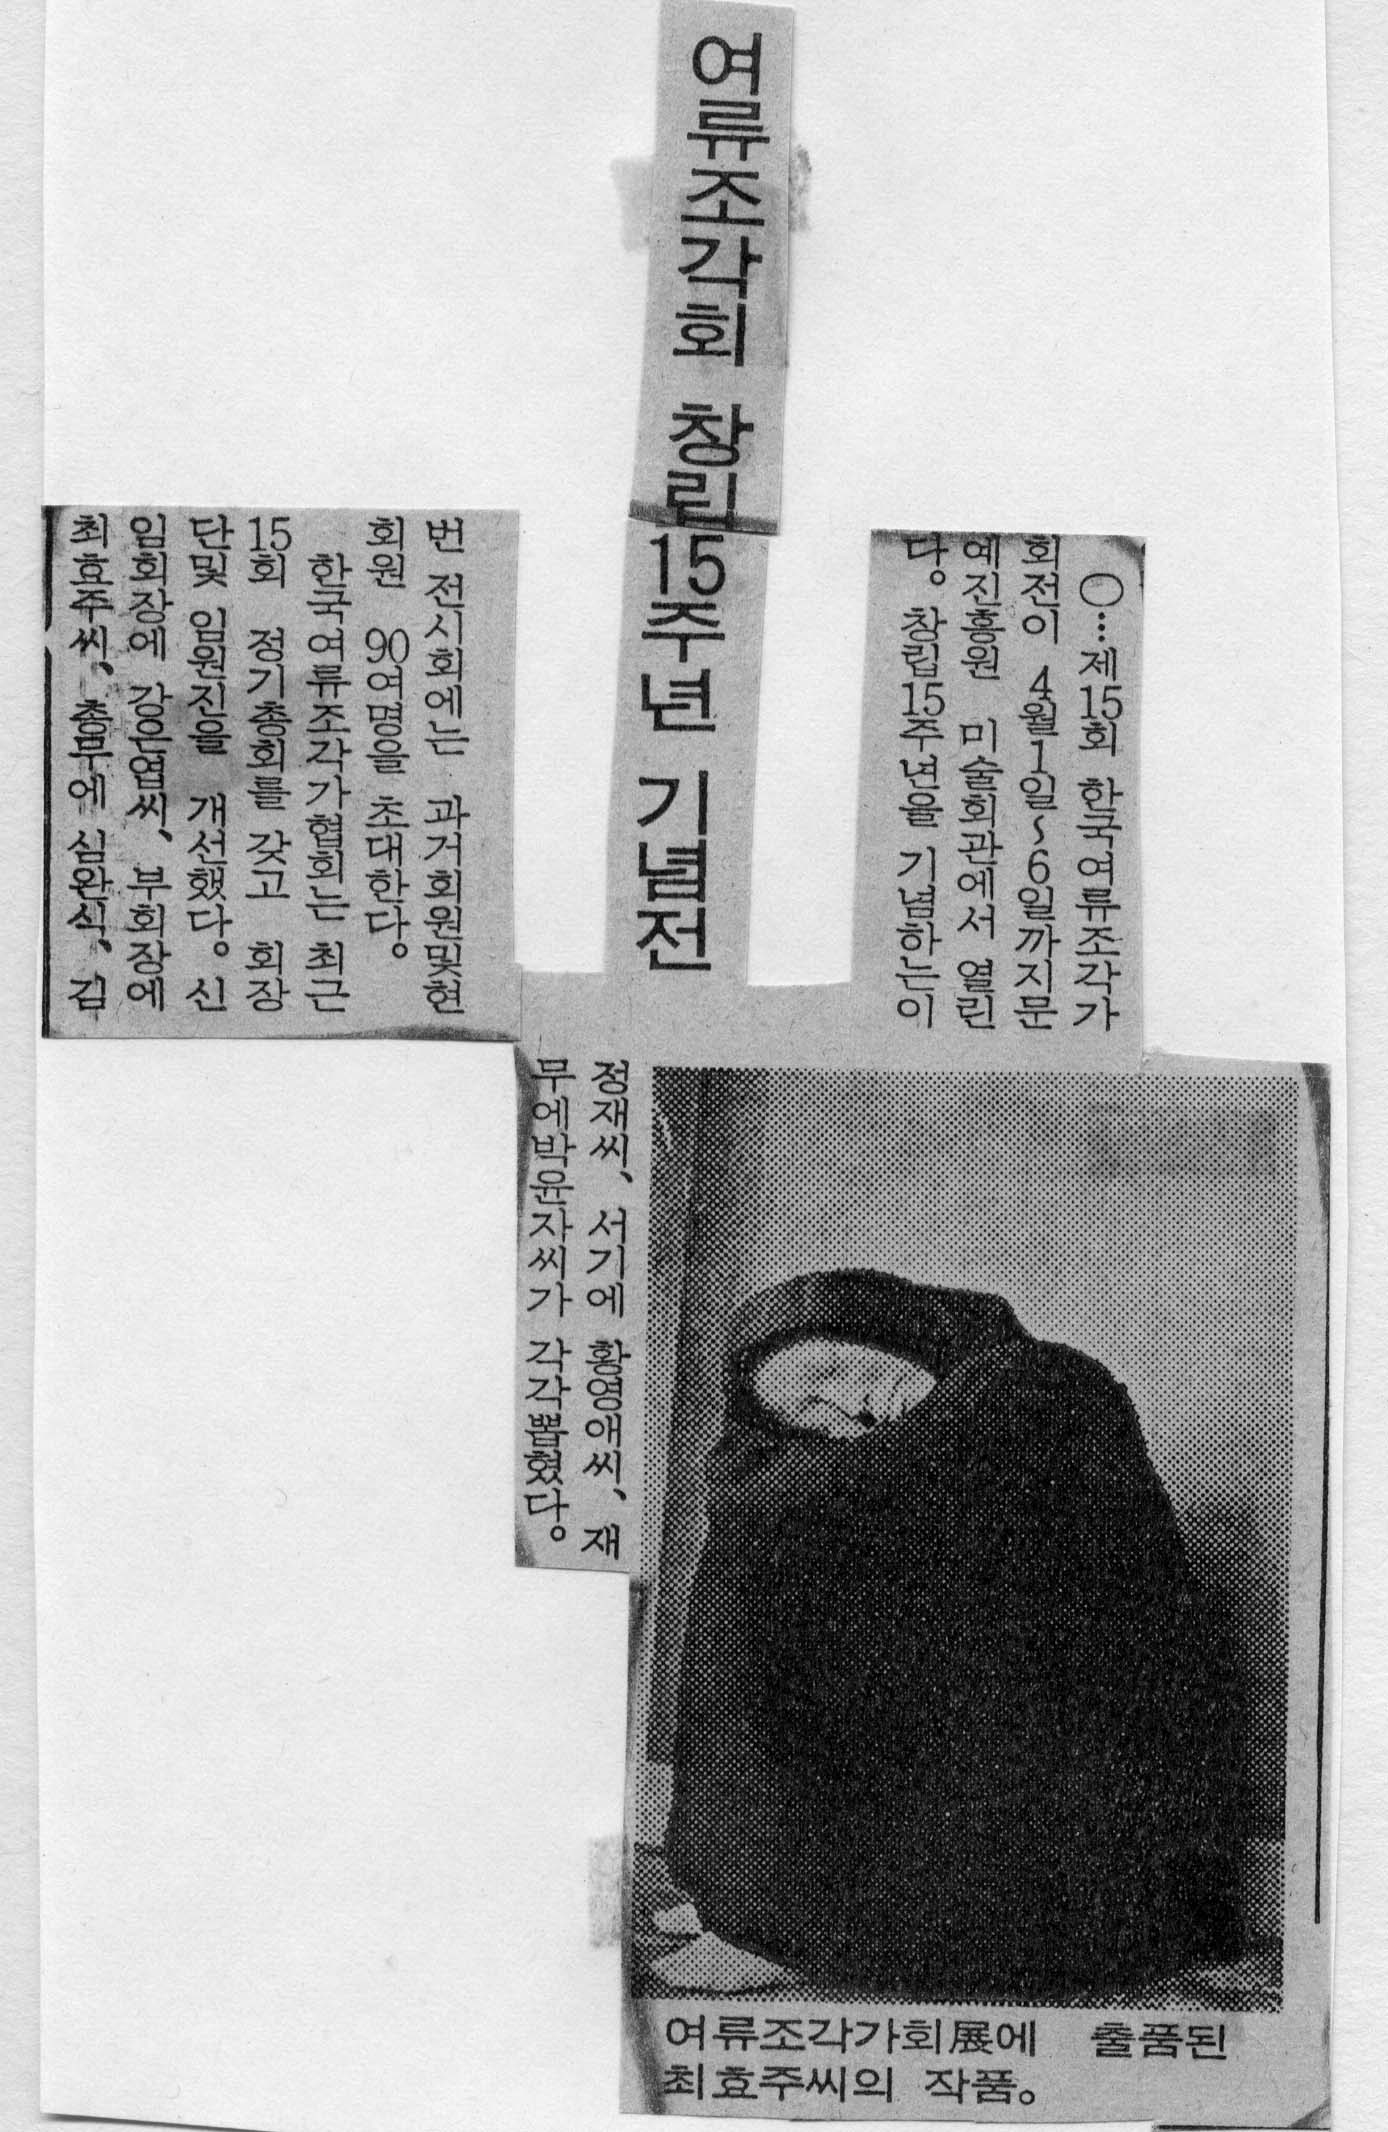 여류조각회 창립15주년 기념전
○…제15회 한국여류조각가
회전이 4월1일~6일까지문
예진흥원 미술회관에서 열린
다。 창립15주년을 기념하는이
번 전시회에는 과거회원및현
회원 90여명을 초대한다。
한국여류조각가협회는 최근
15회 정기총회를 갖고 회장
단및 임원진을 개선했다。 신
임회장에 강은엽씨、 부회장에
최효주씨、 총무에 심완식、 김
정재씨、 서기에 황영애씨、 재
무에박윤자씨가 각각뽑혔다。
여류조각가회展에 출품된
최효주씨의 작품。